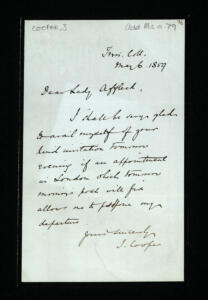 COOPER, J
Add. Ms. a. 79
Trin. Coll.
May 6 1857
Dear Lady Affleck,
I shall be very glad
to avail myself of your
kind invitation tomorrow
evening if an appointment
in London which tomorrow
morning's post will fix
allows me to postpone my
departure
Yours sincerely
J. Cooper